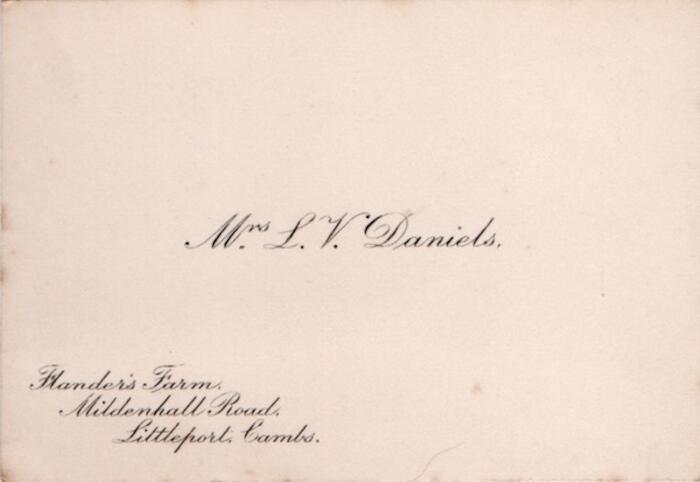 Mrs L. V. Daniels.
Flander's Farm.
Mildenhall Road.
Littleport. Cambs.